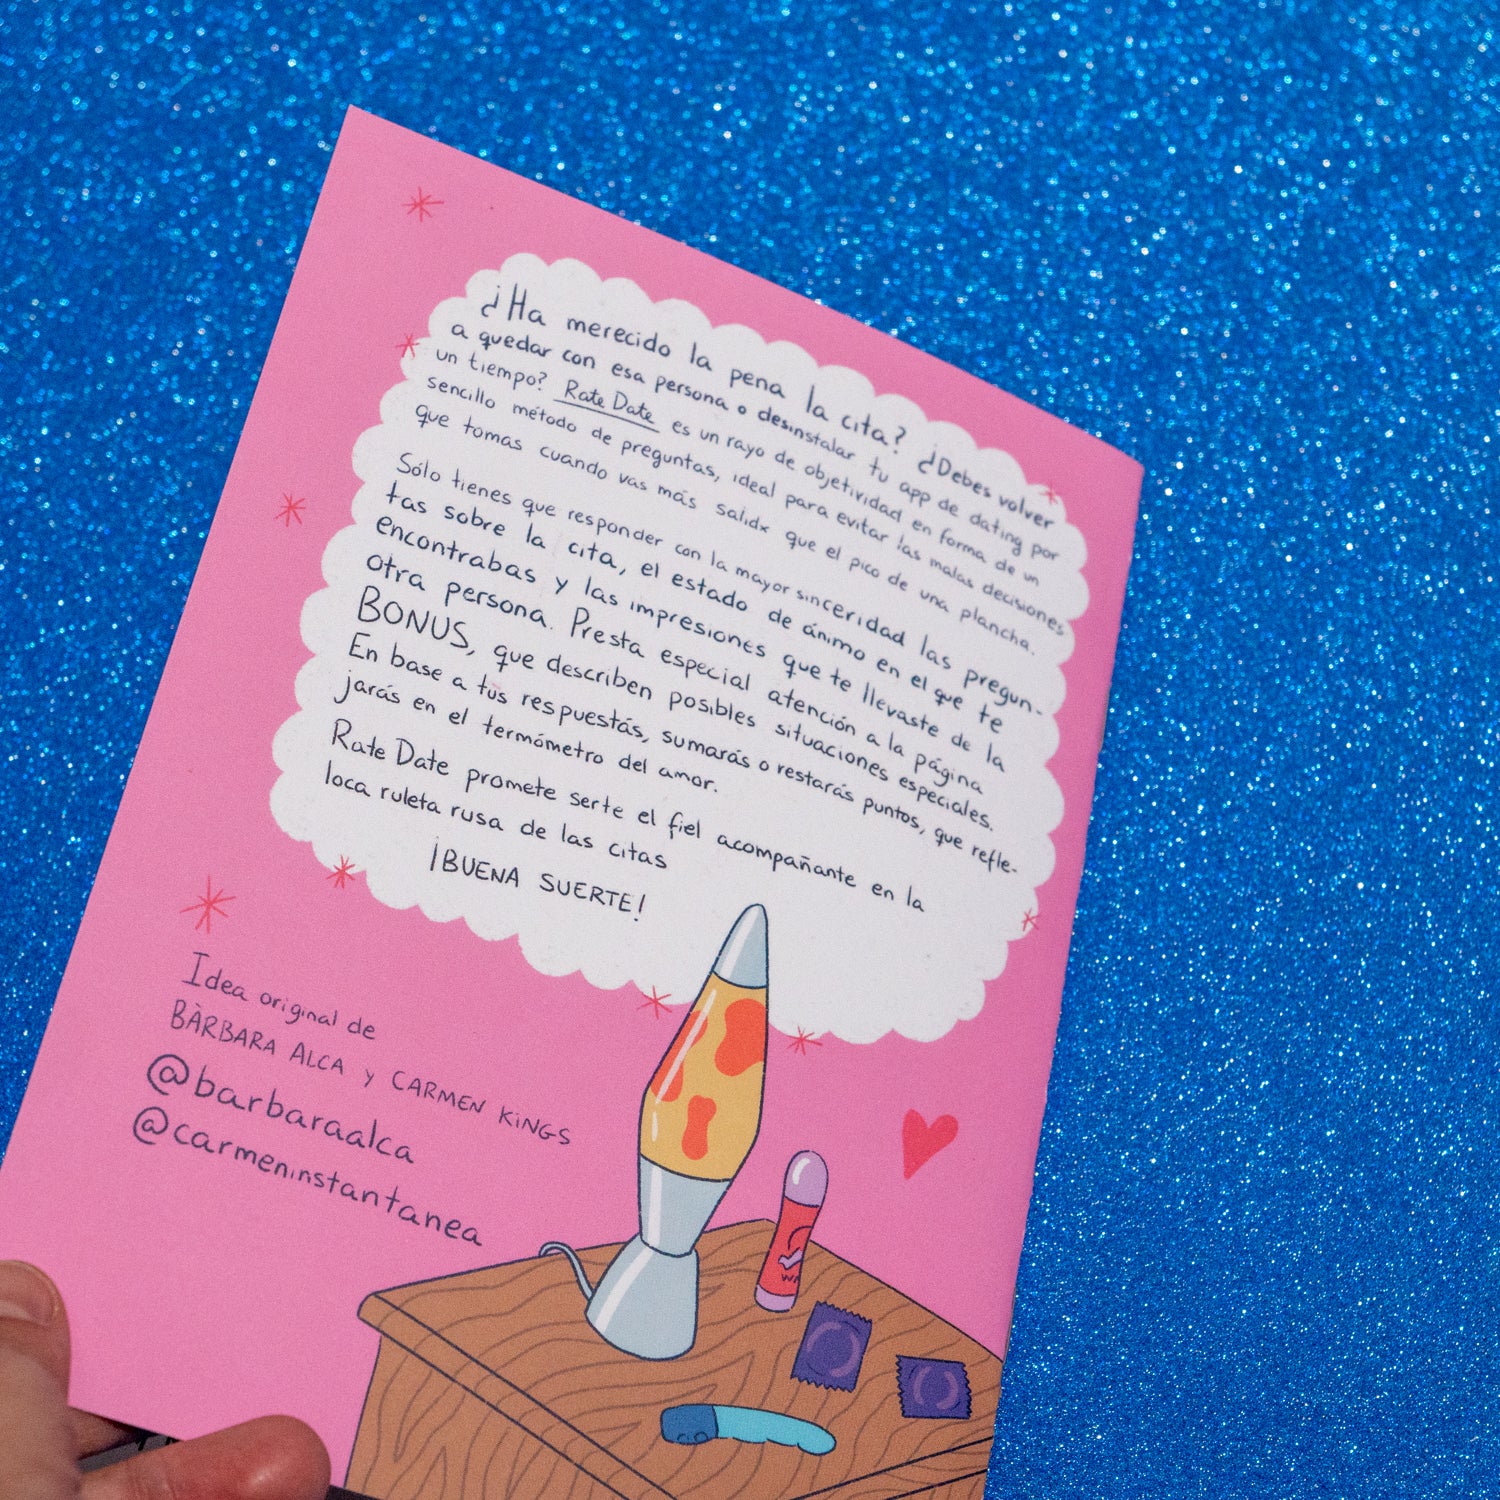 ¿Ha merecido la pena la cita? ¿Debes volver
a quedar con esa persona o desinstalar tu app de dating por
un tiempo? Rate Date es un rayo de objetividad en forma de un
sencillo método de preguntas, ideal para evitar las malas decisiones
que tomas cuando vas más salidx que el pico de una plancha.
Sólo tienes que responder con la mayor sinceridad las pregun-
tas sobre la cita, el estado de ánimo en el que te
encontrabas y las impresiones que te llevaste de la
otra persona. Presta especial atención a la página
BONUS, que describen posibles situaciones especiales.
En base a tus respuestás, sumarás o restarás puntos, que refle-
jarás en el termómetro del amor.
Rate Date promete serte el fiel acompañante en la
loca ruleta rusa de las citas
¡BUENA SUERTE!
Idea original de
BÀRBARA ALCA y CARMEN KiNGS
@barbaraalca
@carmeninstantanea